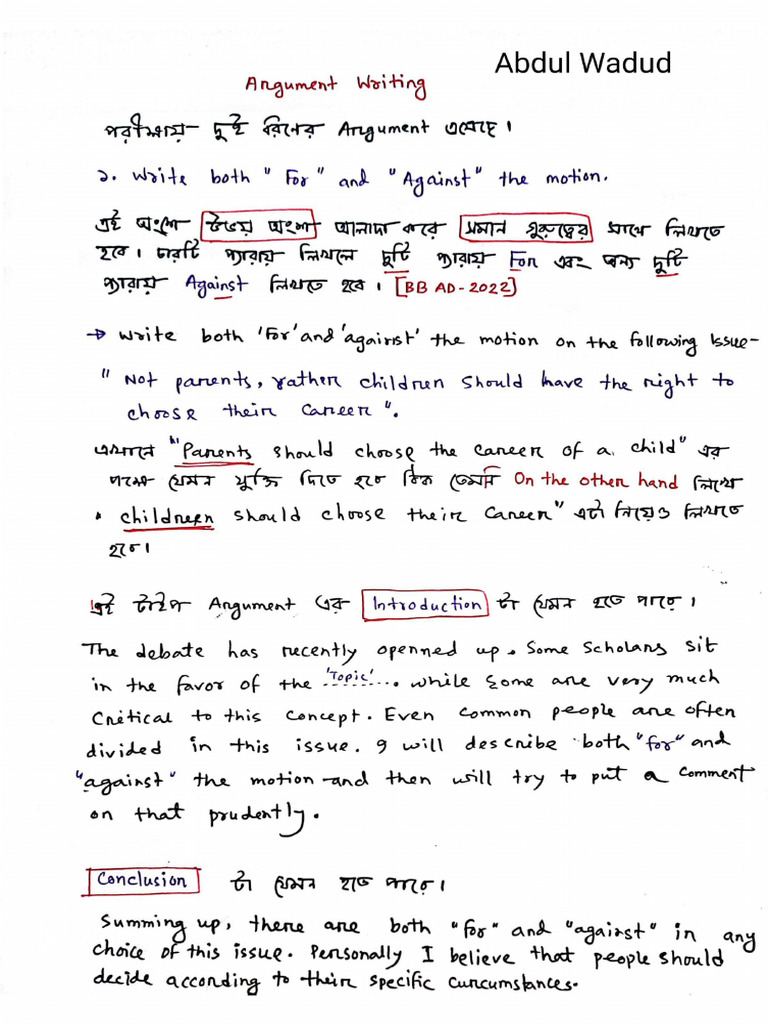 Abdul Wadud
Argument Writing
পরীক্ষায় দুই ধরিনের Argument এসেছে।
১. Write both "For" and "Against" the motion.
এই অংশে উভয় অংশ আলাদা করে সমান গুরুত্বের সাথে লিখতে
হবে। চারটি প্যারায় লিখলে দুটি প্যারায় For এবং অন্য দুটি
প্যারায় Against লিখতে হবে। [BB AD-2022]
→ Write both 'For' and 'against' the motion on the following Issue-
"Not parents, rather children should have the right to
choose their career".
এখানে "Parents should choose the career of a child" এর
পক্ষে যেমন যুক্তি দিতে হবে ঠিক তেমনি On the other hand লিখে
" children should choose their Career" এটা নিয়েও লিখতে
হবে।
এই টাইপ Argument এর Introduction টা যেমন হতে পারে।
The debate has recently openned up. Some Scholars sit
in the favor of the 'Topic'....... while some are very much
Critical to this concept. Even common people are often
divided in this issue. I will describe both "for" and
"against" the motion and then will try to put a comment
on that prudently.
Conclusion টা যেমন হতে পারে।
Summing up, there are both "for" and "against" in any
choice of this issue. Personally I believe that people should
decide according to their specific curcumstances.